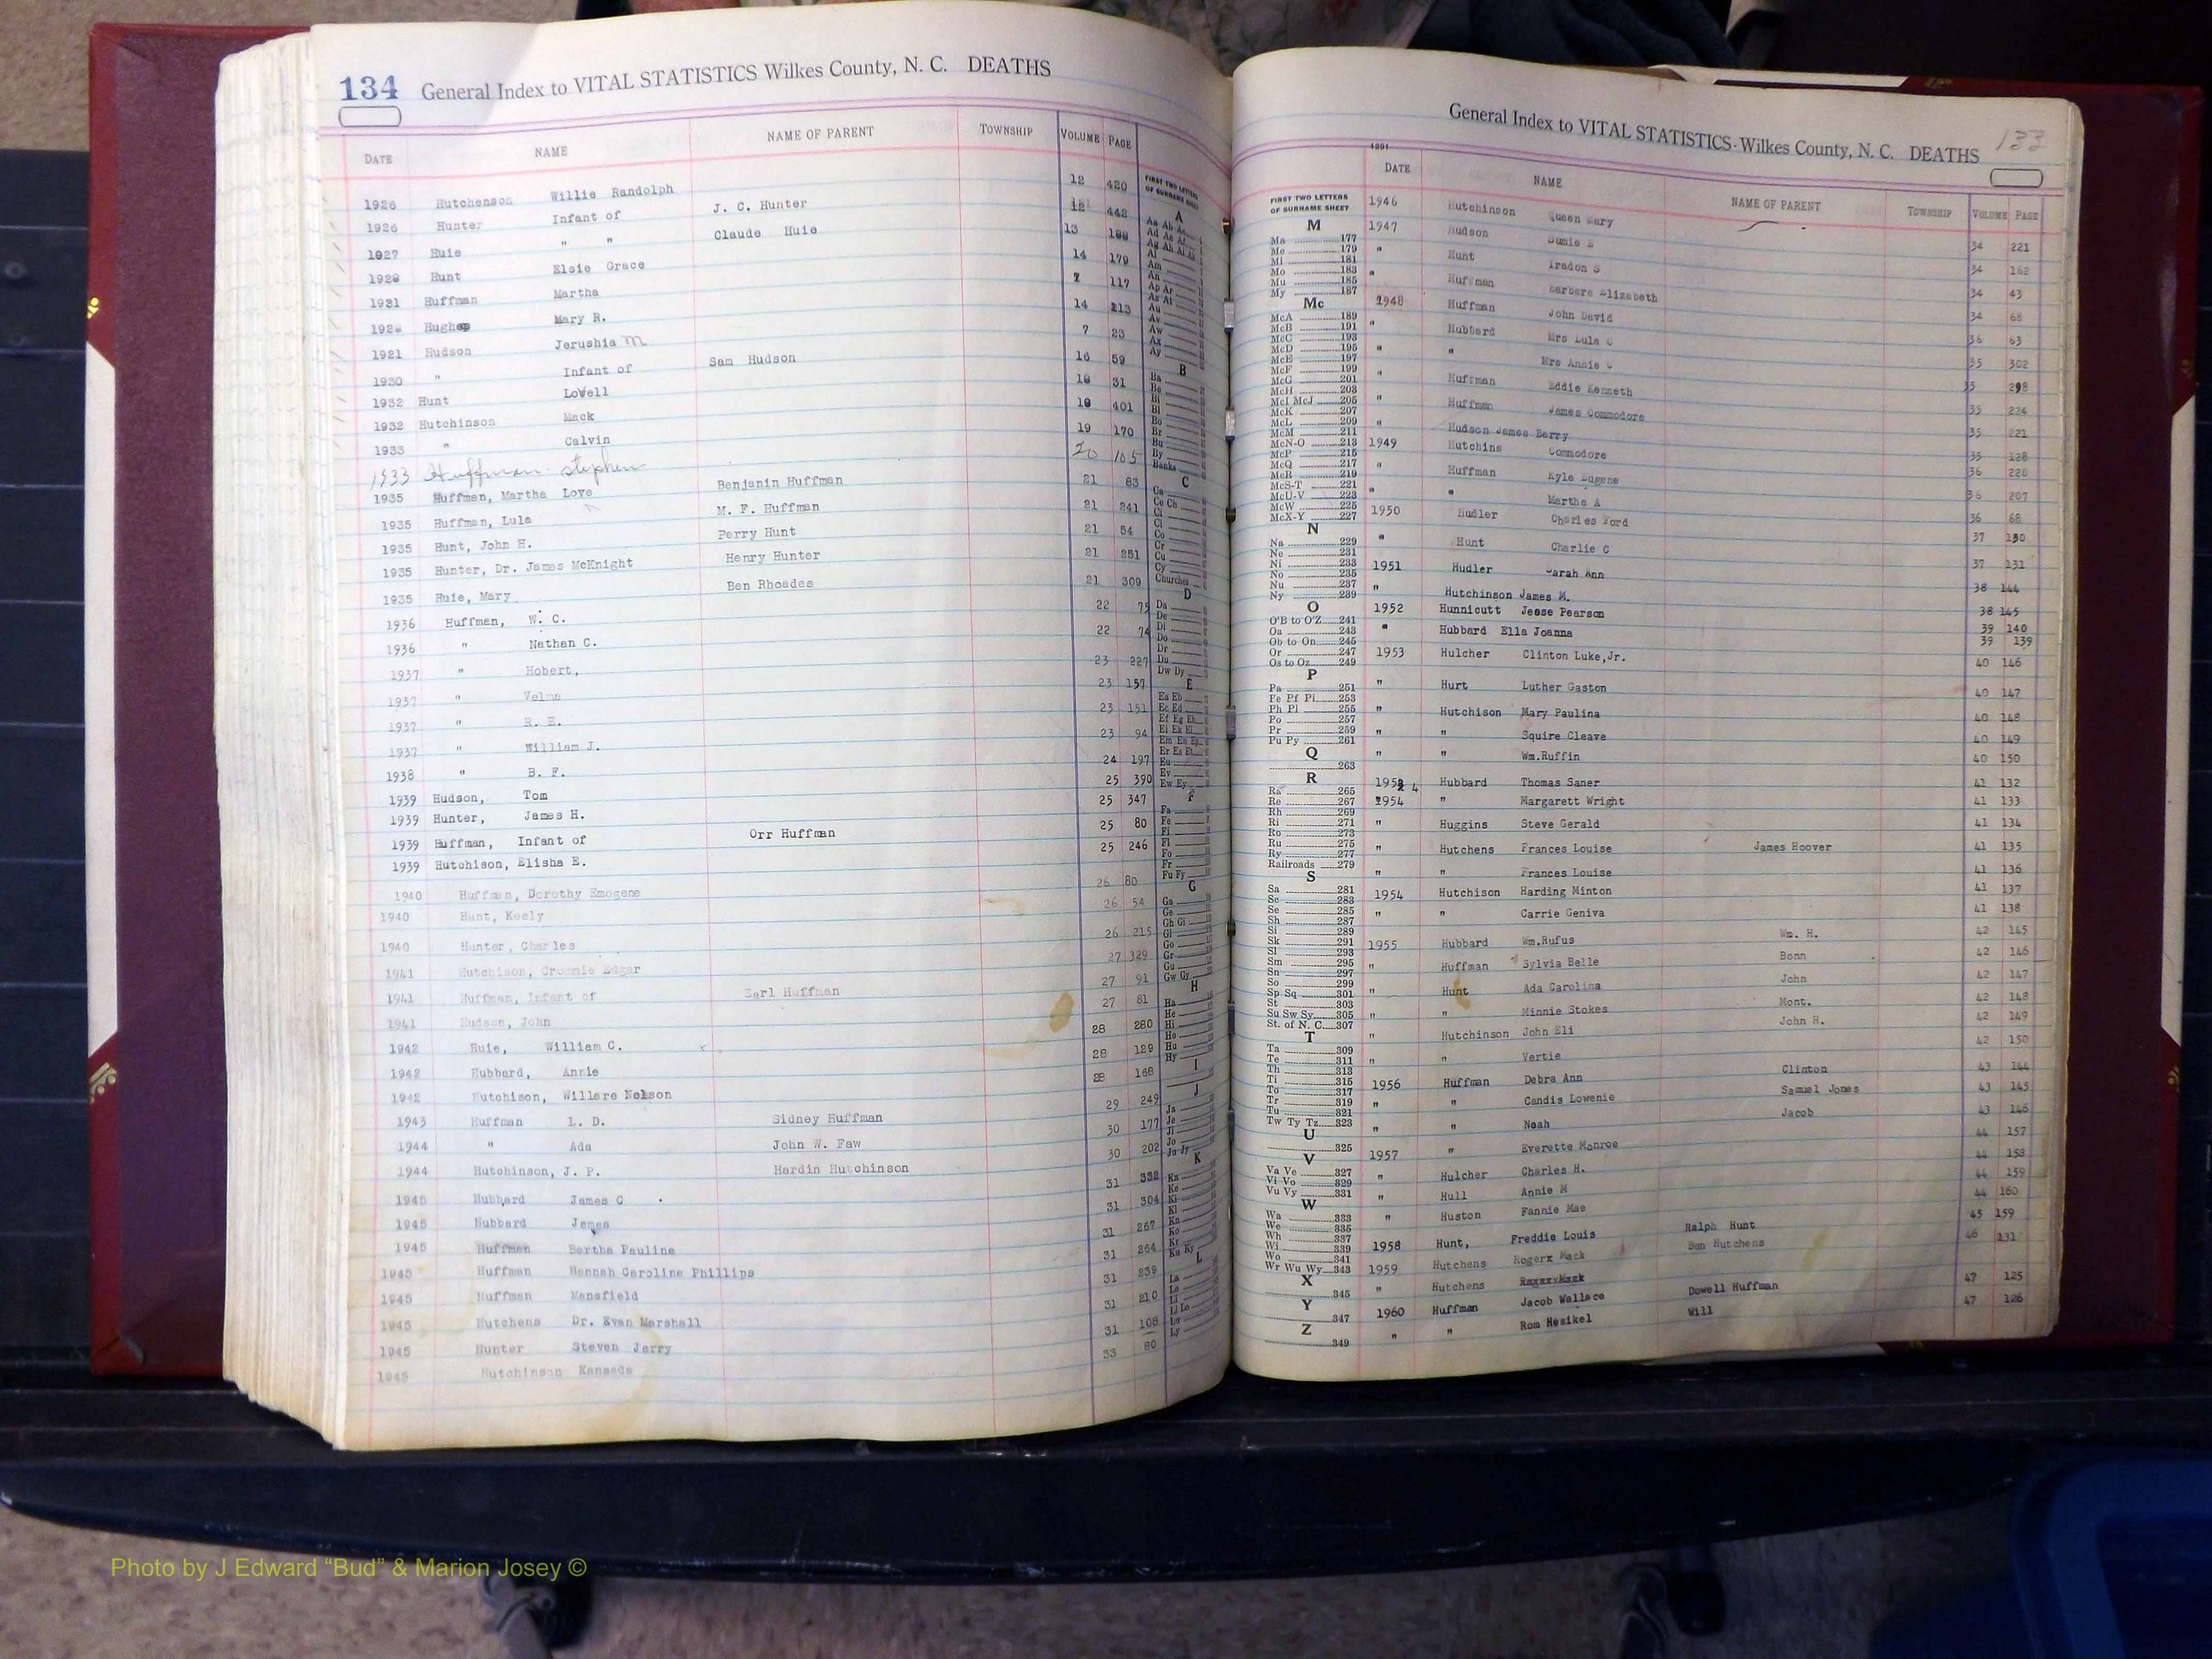 134 General Index to VITAL STATISTICS Wilkes County, N. C. DEATHS
DATE NAME NAME OF PARENT TOWNSHIP VOLUME PAGE
1926 Hutchenson Willie Randolph 12 420
1926 Hunter Infant of J. C. Hunter 12 442
1927 Huie " " Claude Huie 13 188
1928 Hunt Elsie Grace 14 179
1931 Huffman Martha 117
Hughes Mary R. 14 213
1921 Hudson Jerushia M 7 23
1930 " Infant of Sam Hudson 16 59
1932 Hunt Lovell 31
1932 Hutchinson Mack 401
1933 " Calvin 19 170
1933 Huffman. stephen 20 105
1935 Huffman, Martha Love Benjanin Huffman 21 83
1935 Huffman, Lula M. F. Huffman 21 241
1935 Hunt, John H. Perry Hunt 21 54
1935 Hunter, Dr. James McKnight Henry Hunter 21 251
1935 Huie, Mary Ben Rhoades 21 309
1936 Huffman, W. C. 22 75
1936 " Nathan C. 22 74
1937 " Hobert, 23 227
1937 " Velma 23 157
1937 " R. E. 23 151
1937 " William J. 23 94
1938 " B. F. 24 197
1939 Hudson, Tom 25 390
1939 Hunter, James H. 25 347
1939 Huffman, Infant of Orr Huffman 25 80
1939 Hutchison, Elisha E. 25 246
1940 Huffman, Dorothy Emogene 26 80
1940 Hunt, Keely 26 54
1940 Hunter, Charles 26 215
1941 Hutchison, Crommie Edgar 27 329
1941 Huffman, Infant of Earl Huffman 27 91
1941 Hudson, John 27 81
1942 Huie, William C. 28 280
1942 Hubbard, Annie 28 129
1942 Hutchison, Willare Nelson 28 168
1943 Huffman L. D. Sidney Huffman 29 249
1944 " Ada John W. Faw 30 177
1944 Hutchinson, J. P. Hardin Hutchinson 30 202
1945 Hubbard James C 31 332
1945 Hubbard James 31 304
1945 Huffman Bertha Pauline 31 267
1945 Huffman Hannah Caroline Phillips 31 264
1945 Huffman Mansfield 31 239
1945 Hutchens Dr. Evan Marshall 31 210
1945 Hunter Steven Jerry 31 108
1945 Hutchinson Kanseda 33 80
FIRST TWO LETTERS
OF SURNAME SHEET
A
B
C
D
E
F
G
H
I
J
K
L
General Index to VITAL STATISTICS-Wilkes County, N. C. DEATHS 133
DATE NAME NAME OF PARENT TOWNSHIP VOLUME PAGE
1946 Hutchinson Queen Mary 34 221
1947 Hudson 34 162
" Hunt Iradon S 34 43
" Huffman Barbara Elizabeth 34 68
1948 Huffman John David 36 63
" Hubbard Mrs Lula C 35 302
" " Mrs Annie C 35 298
" Huffman Eddie Kenneth 35 224
" Huffman James Commodore 35 221
" Hudson James Berry 35 128
1949 Hutchins Commodore 36 220
" Huffman Kyle Eugene 36 207
" " Martha A 36 68
1950 Hudler Charles Ford 37 130
" Hunt Charlie C 37 131
1951 Hudler Sarah Ann 38 144
" Hutchinson James M. 38 145
1952 Hunnicutt Jesse Pearson 39 140
" Hubbard Ella Joanna 39 139
1953 Hulcher Clinton Luke,Jr. 40 146
" Hurt Luther Gaston 40 147
" Hutchison Mary Paulina 40 148
" " Squire Cleave 40 149
" " Wm.Ruffin 40 150
1954 Hubbard Thomas Saner 41 132
1954 " Margarett Wright 41 133
" Huggins Steve Gerald 41 134
" Hutchens Frances Louise James Hoover 41 135
" " Frances Louise 41 136
1954 Hutchison Harding Minton 41 137
" " Carrie Geniva 41 138
1955 Hubbard Wm.Rufus Wm. H. 42 145
" Huffman Sylvia Belle Bonn 42 146
" Hunt Ada Carolina John 42 147
" " Minnie Stokes Mont. 42 148
" Hutchinson John Eli John H. 42 149
" " Vertie 42 150
1956 Huffman Debra Ann Clinton 43 144
" " Candis Lowenie Samuel Jones 43 145
" " Noah Jacob 43 146
1957 " Everette Monroe 44 157
" Hulcher Charles H. 44 158
" Hull Annie M 44 159
" Huston Fannie Mae 44 160
1958 Hunt, Freddie Louis Ralph Hunt 45 159
1959 Hutchens Rogerx Mack Ben Hutchens 46 131
" Hutchens
1960 Huffman Jacob Wallace Dowell Huffman 47 125
" " Rom Hezikel Will 47 126
FIRST TWO LETTERS
OF SURNAME SHEET
M
Ma 177
Me 179
Mi 181
Mo 183
Mu 185
My 187
Mc
McA 189
McB 191
McC 193
McD 195
McE 197
McF 199
McG 201
McH 203
McI McJ 205
McK 207
McL 209
McM 211
McN-O 213
McP 215
McQ 217
McR 219
McS-T 221
McU-V 223
McW 225
McX-Y 227
N
Na 229
Ne 231
Ni 233
No 235
Nu 237
Ny 239
O
O'B to O'Z 241
Oa 243
Ob to On 245
Or 247
Os to Oz 249
P
Pa 251
Pe Pf Pi 253
Ph Pl 255
Po 257
Pr 259
Pu Py 261
Q
263
R
Ra 265
Re 267
Rh 269
Ri 271
Ro 273
Ru 275
Ry 277
Railroads 279
S
Sa 281
Sc 283
Se 285
Sh 287
Si 289
Sk 291
Sl 293
Sm 295
Sn 297
So 299
Sp Sq 301
St 303
Su Sw Sy 305
St. of N. C. 307
T
Ta 309
Te 311
Th 313
Ti 315
To 317
Tr 319
Tu 321
Tw Ty Tz 323
U
325
V
Va Ve 327
Vi Vo 329
Vu Vy 331
W
Wa 333
We 335
Wh 337
Wi 339
Wo 341
Wr Wu Wy 343
X
345
Y
347
Z
349
Photo by J Edward “Bud” & Marion Josey ©